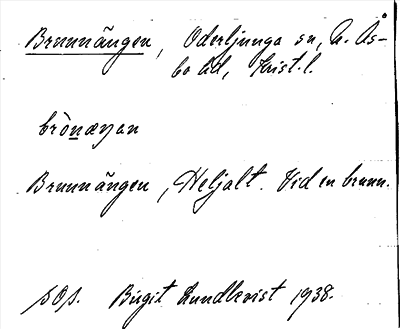 Brunnängen, Oderljunga sn, N. Ås-
bo hd, Krist. l.
brònæŋan
Brunnängen, Heljalt. Vid en brunn.
Birgit Lundkvist 1938.